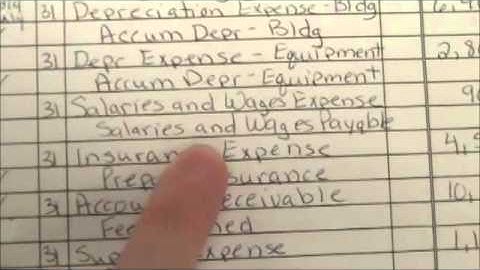 31 Depreciation Expense-Bldg 6,4
Accum Depr-Bldg
31 Depr Expense-Equipment 2,8
Accum Depr-Equipment
31 Salaries and Wages Expense 90
Salaries and Wages Payable
31 Insurance Expense 4,5
Prep surance
31 Accou ceivable 10,
Fee ned
31 Sup xpense 1,1